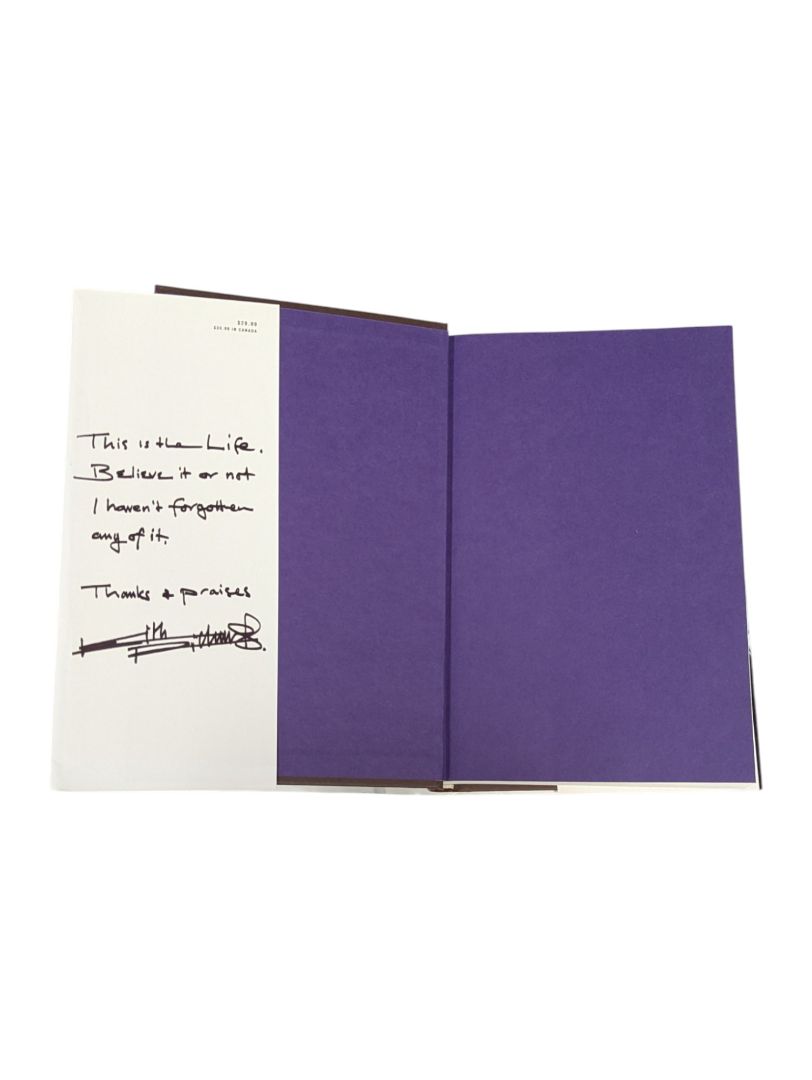 $29.99
$35.99 IN CANADA
This is the Life.
Believe it or not
I haven't forgotten
any of it.
Thanks & praises
Keith Richards.